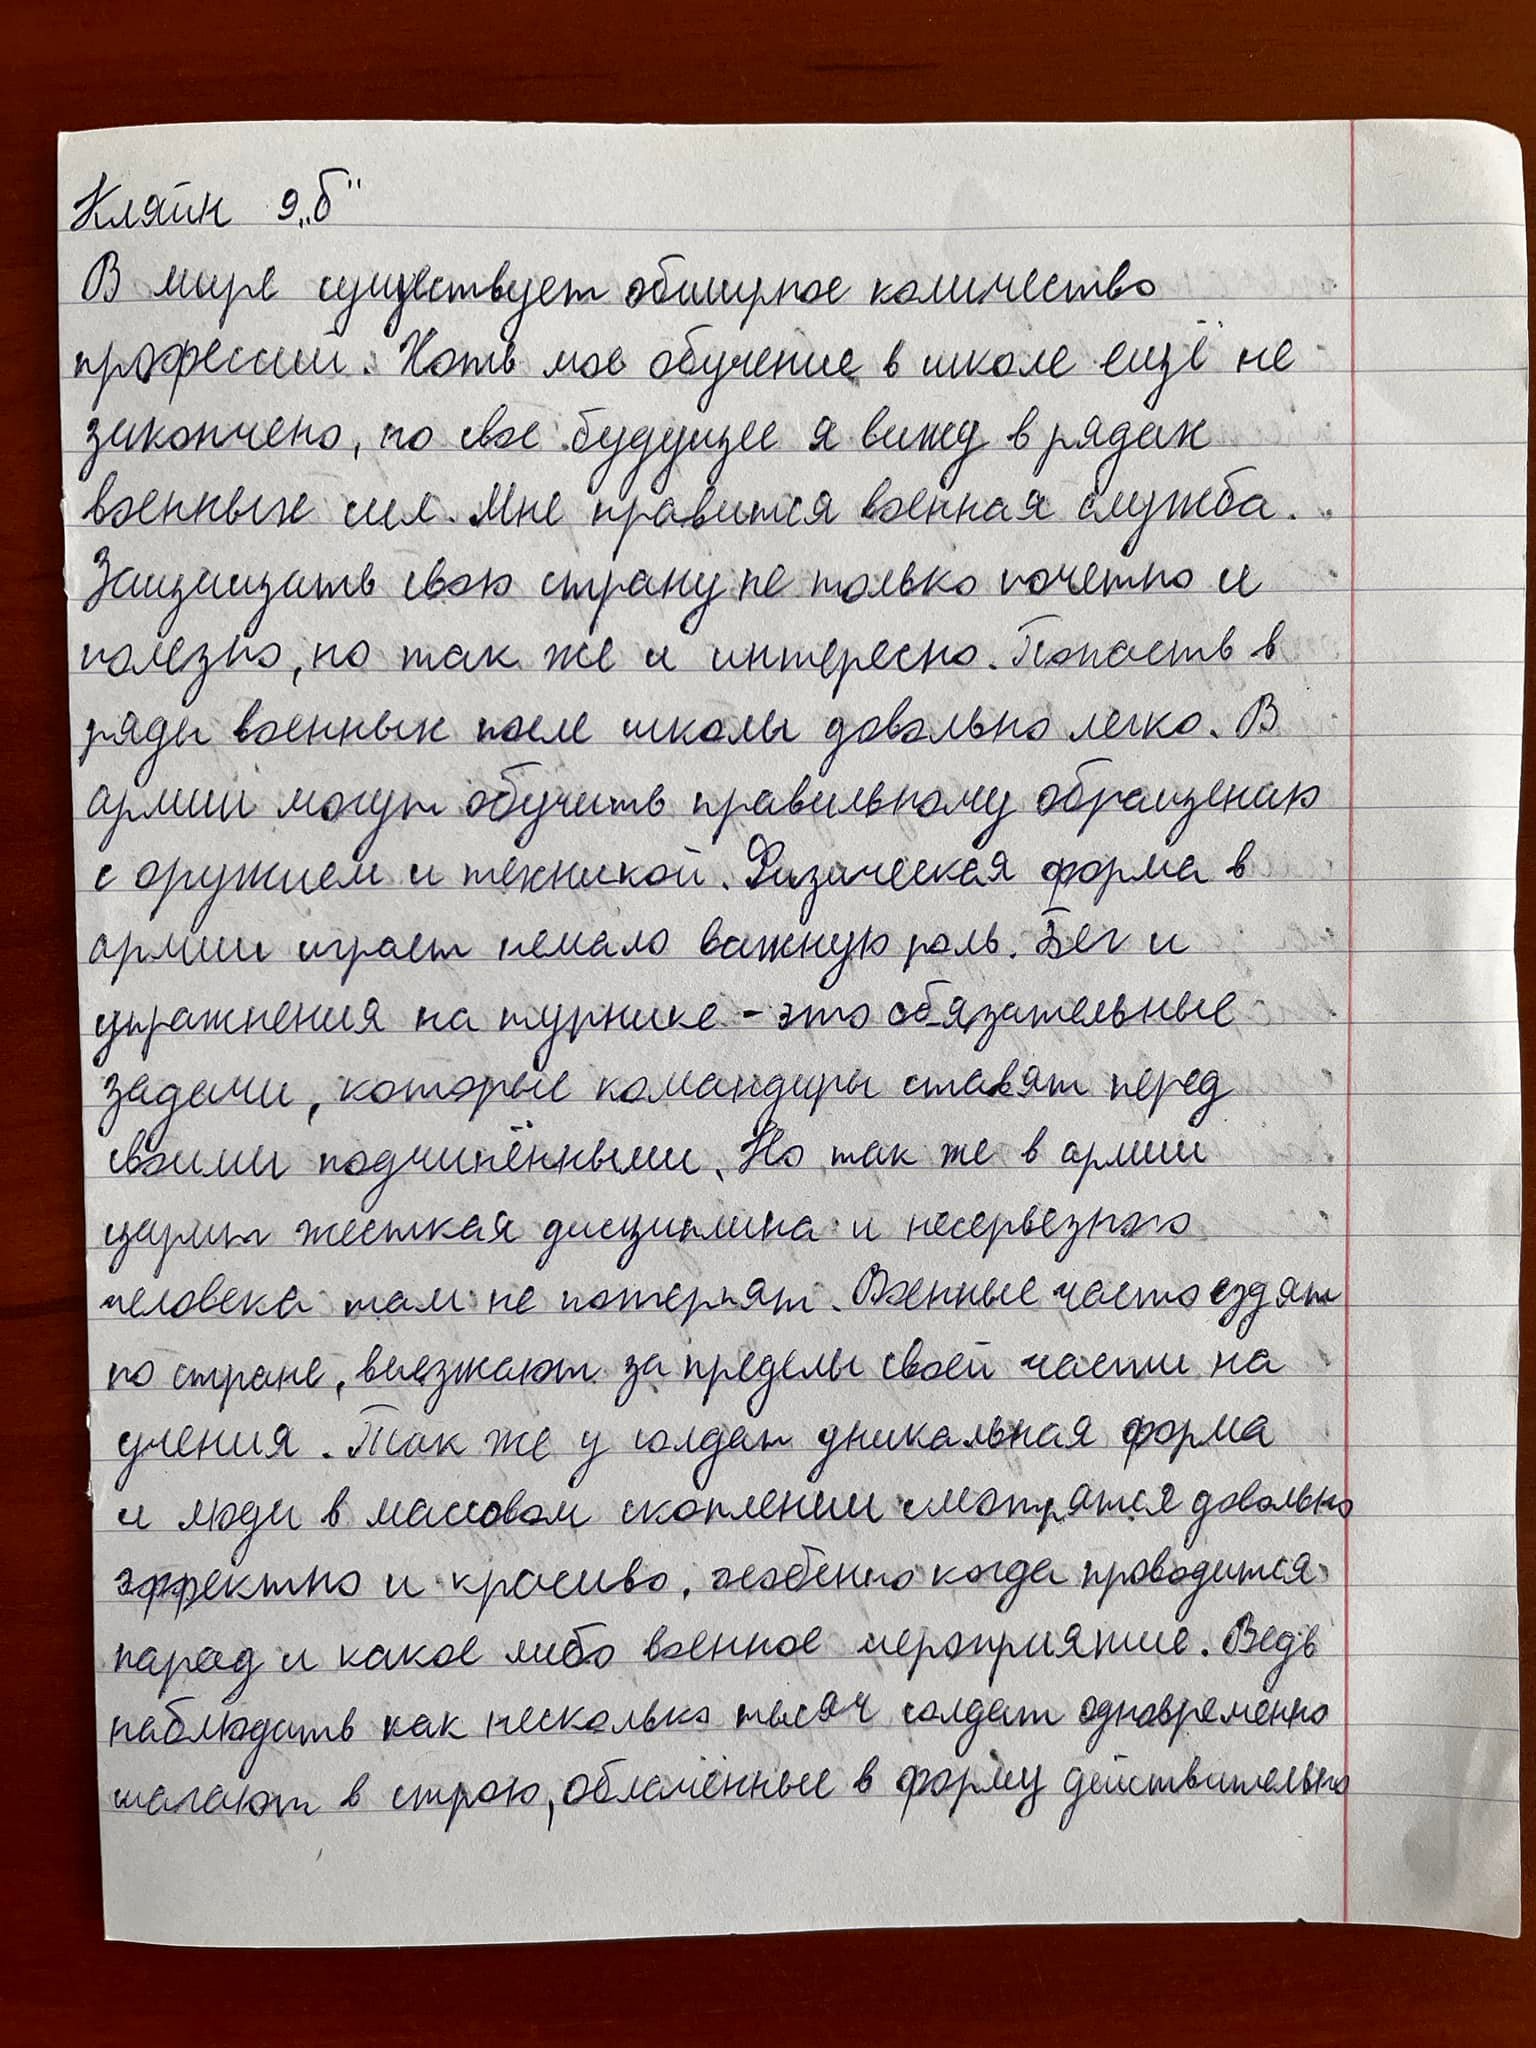 Кляйн 9„б"
В мире существует обширное количество
профессий. Хоть мое обучение в школе ещё не
закончено, но свое будущее я вижу в рядах
военных сил. Мне нравится военная служба.
Защищать свою страну не только почетно и
полезно, но так же и интересно. Попасть в
ряды военных после школы довольно легко. В
армии могут обучить правильному обращению
с оружием и техникой. Физическая форма в
армии играет немало важную роль. Бег и
упражнения на турнике - это обязательные
задачи, которые командиры ставят перед
своими подчинёнными. Но так же в армии
царит жесткая дисциплина и несерьезного
человека там не потерпят. Военные часто ездят
по стране, выезжают за пределы своей части на
учения. Так же у солдат уникальная форма
и люди в массовом скоплении смотрятся довольно
эффектно и красиво, особенно когда проводится
парад и какое либо военное мероприятие. Ведь
наблюдать как несколько тысяч солдат одновременно
шагают в строю, облачённые в форму действительно